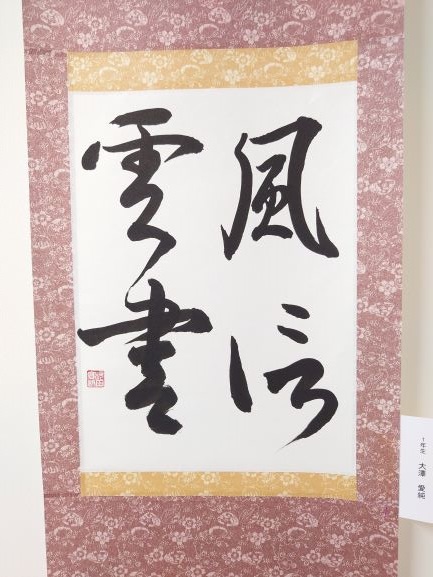 風信
雲書
1年生 大澤 愛純